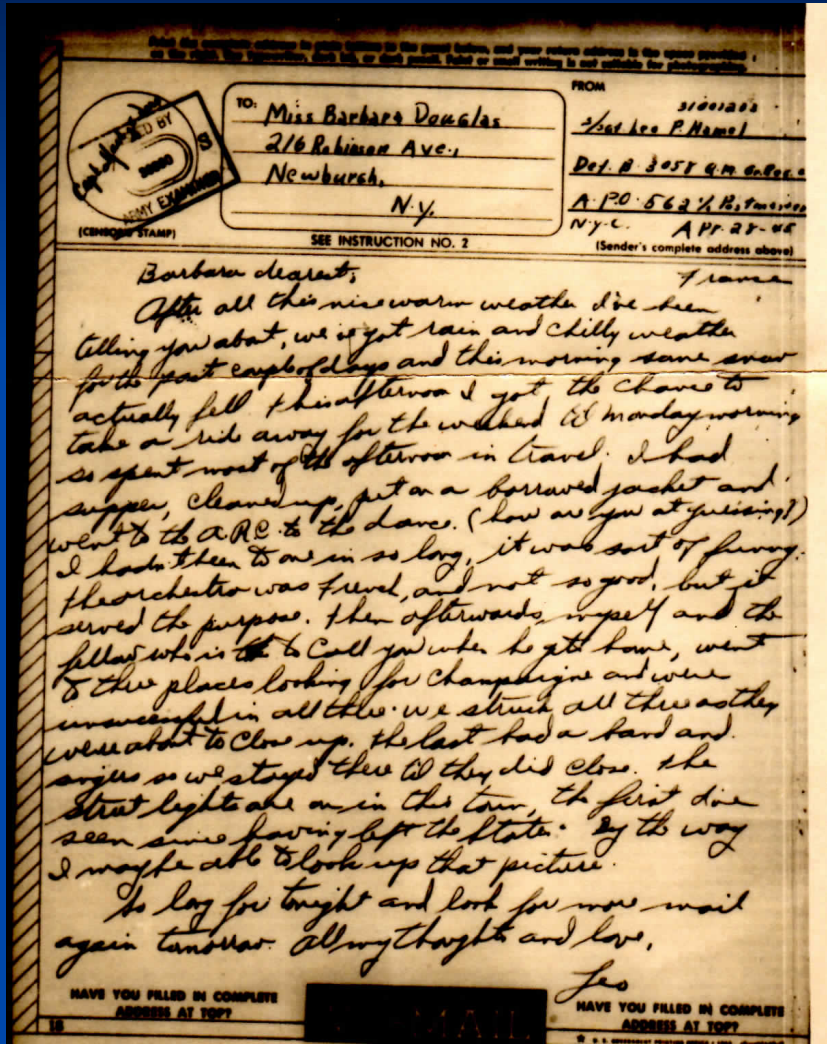 Print the complete address in plain letters in the panel below, and your return address in the space provided
on the right. Use typewriter, dark ink, or dark pencil. Faint or small writing is not suitable for photographing.
TO:
Miss Barbara Douglas
216 Robinson Ave.,
Newburgh,
N.Y.
FROM
31001203
S/Sgt Leo P. Hamel
Det. B 3058 Q.M.
A.P.O. 562 % Postmaster
N.Y.C. APr. 28-45
(Sender's complete address above)
BY
ARMY EXAMINER
(CENSOR'S STAMP)
SEE INSTRUCTION NO. 2
Barbara dearest, France
After all this nise warm weather I've been
telling you about, we've got rain and chilly weather
for the past couple of days and this morning some snow
actually fell. This afternoon I got the chance to
take a ride away for the weekend til Monday morning
so spent most of the afternoon in travel. I had
supper, cleaned up, put on a borrowed jacket and
went to the A.R.C. to the dance. (how are you at guessing?)
I hadn't been to one in so long, it was sort of funny.
The orchestra was French, and not so good, but it
served the purpose. Then afterwards, myself and the
fellow who is to call you when he gets home, went
to three places looking for champaigne and were
unsuccessful in all three. We struck all three as they
were about to close up. The last had a band and
singers so we stayed there til they did close. The
street lights are on in this town, the first I've
seen since having left the States. By the way
I may be able to look up that picture.
So long for tonight and look for more mail
again tomorrow. All my thoughts and love,
Leo
HAVE YOU FILLED IN COMPLETE
ADDRESS AT TOP?
MAIL
HAVE YOU FILLED IN COMPLETE
ADDRESS AT TOP?